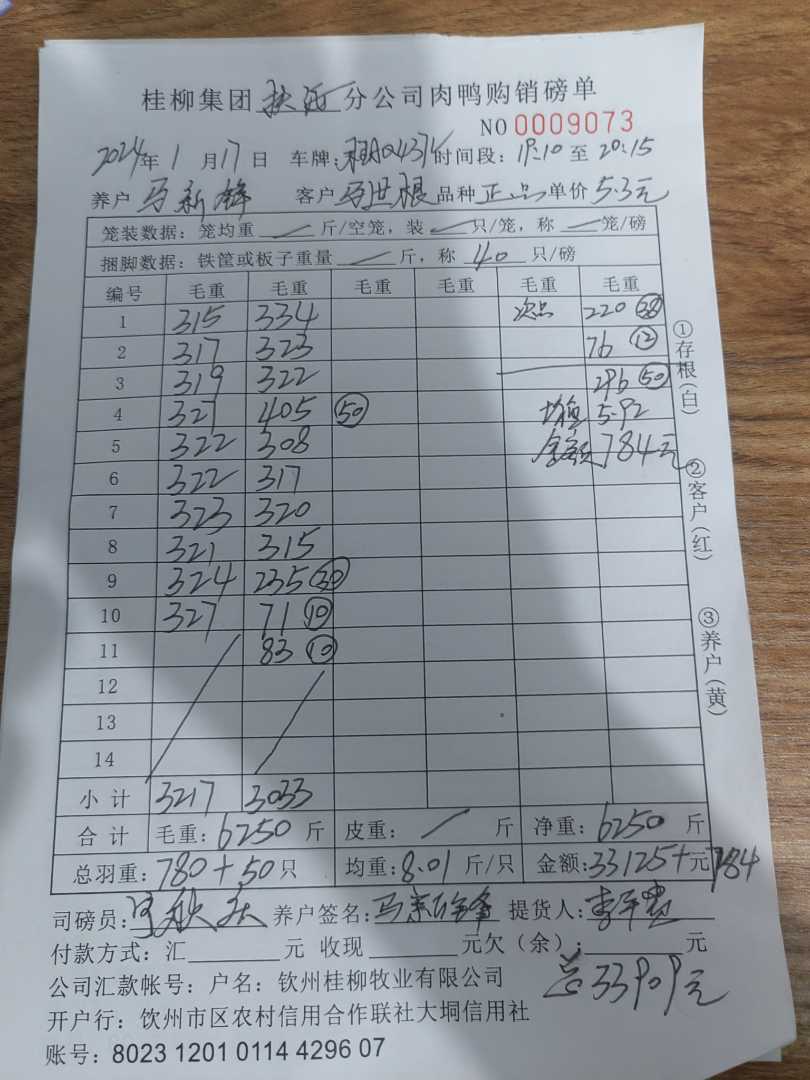 桂柳集团 分公司肉鸭购销磅单
NO 0009073
2024年 1 月 17 日 车牌: 时间段: 19:10 至 20:15
养户 马新锋 客户 马世根 品种 正品 单价 5.3元
笼装数据: 笼均重 / 斤/空笼, 装 / 只/笼, 称 / 笼/磅
捆脚数据: 铁筐或板子重量 / 斤, 称 40 只/磅
编号 毛重 毛重 毛重 毛重 毛重 毛重
1 315 334 次品 220 38
2 317 323 76 12
3 319 322 296 50
4 327 405 50 均重 5.92
5 322 308 金额 784元
6 322 317
7 323 320
8 321 315
9 324 235 30
10 327 71 10
11 83 10
12
13
14
小计 3217 3033
合计 毛重: 6250 斤 皮重: / 斤 净重: 6250 斤
总羽重: 780+50 只 均重: 8.01 斤/只 金额: 33125+ 元 784
司磅员: 养户签名: 马新锋 提货人:
付款方式: 汇 元 收现 元欠(余): 元
总33909元
公司汇款帐号: 户名: 钦州桂柳牧业有限公司
开户行: 钦州市区农村信用合作联社大垌信用社
账号: 8023 1201 0114 4296 07
①存根(白)
②客户(红)
③养户(黄)